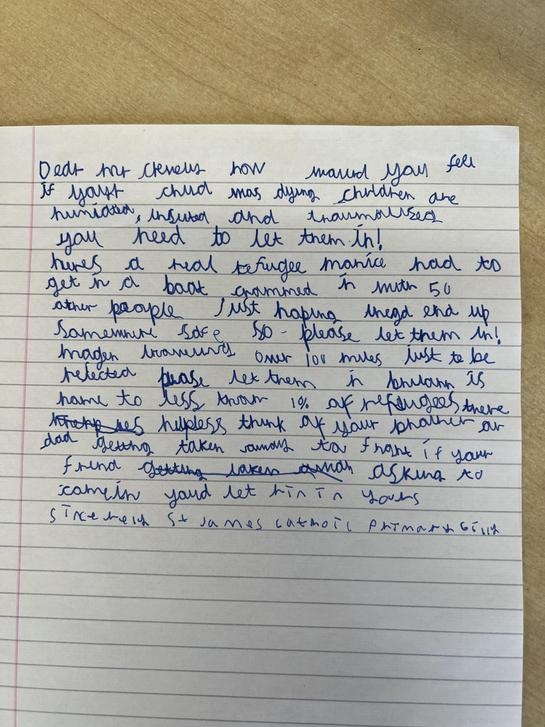 Dear mr clevely how would you feel
if your child was dying children are
humiated, insuted and traumatised
you need to let them in!
heres a real refugee manice had to
get in a boat crammed in with 50
other people Just hoping theyd end up
Somewhere safe so - please let them in!
Imagen traveling over 100 miles Just to be
rejected please let them in britain is
home to less than 1% of refugees there
helpless think of your brother or
dad getting taken away to fight if your
frend getting taken away asking to
come in youd let him in yours
sincerely St James catholic primary